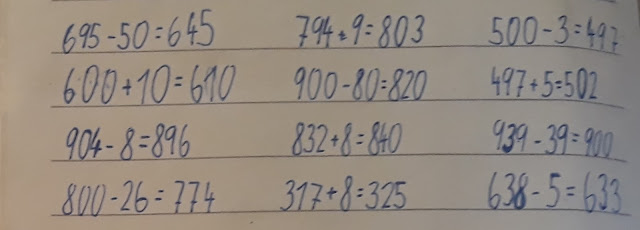 695-50=645 794+9=803 500-3=497
600+10=610 900-80=820 497+5=502
904-8=896 832+8=840 939-39=900
800-26=774 317+8=325 638-5=633